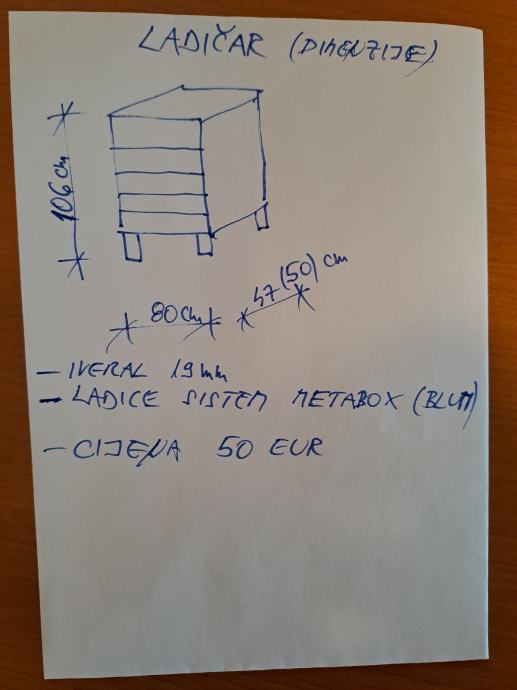 LADIČAR (DIMENZIJE)
106 cm
47 (50) cm
80 cm
- IVERAL 19 mm
- LADICE SISTEM METABOX (BLUM)
- CIJENA 50 EUR